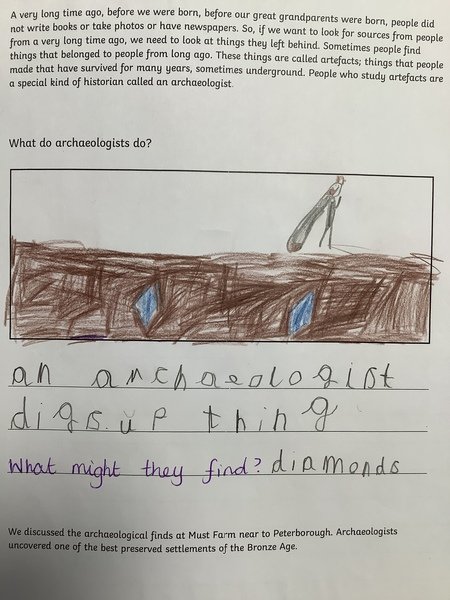 A very long time ago, before we were born, before our great grandparents were born, people did
not write books or take photos or have newspapers. So, if we want to look for sources from people
from a very long time ago, we need to look at things they left behind. Sometimes people find
things that belonged to people from long ago. These things are called artefacts; things that people
made that have survived for many years, sometimes underground. People who study artefacts are
a special kind of historian called an archaeologist.
What do archaeologists do?
an archaeologist
digs up thing
What might they find? diamonds
We discussed the archaeological finds at Must Farm near to Peterborough. Archaeologists
uncovered one of the best preserved settlements of the Bronze Age.